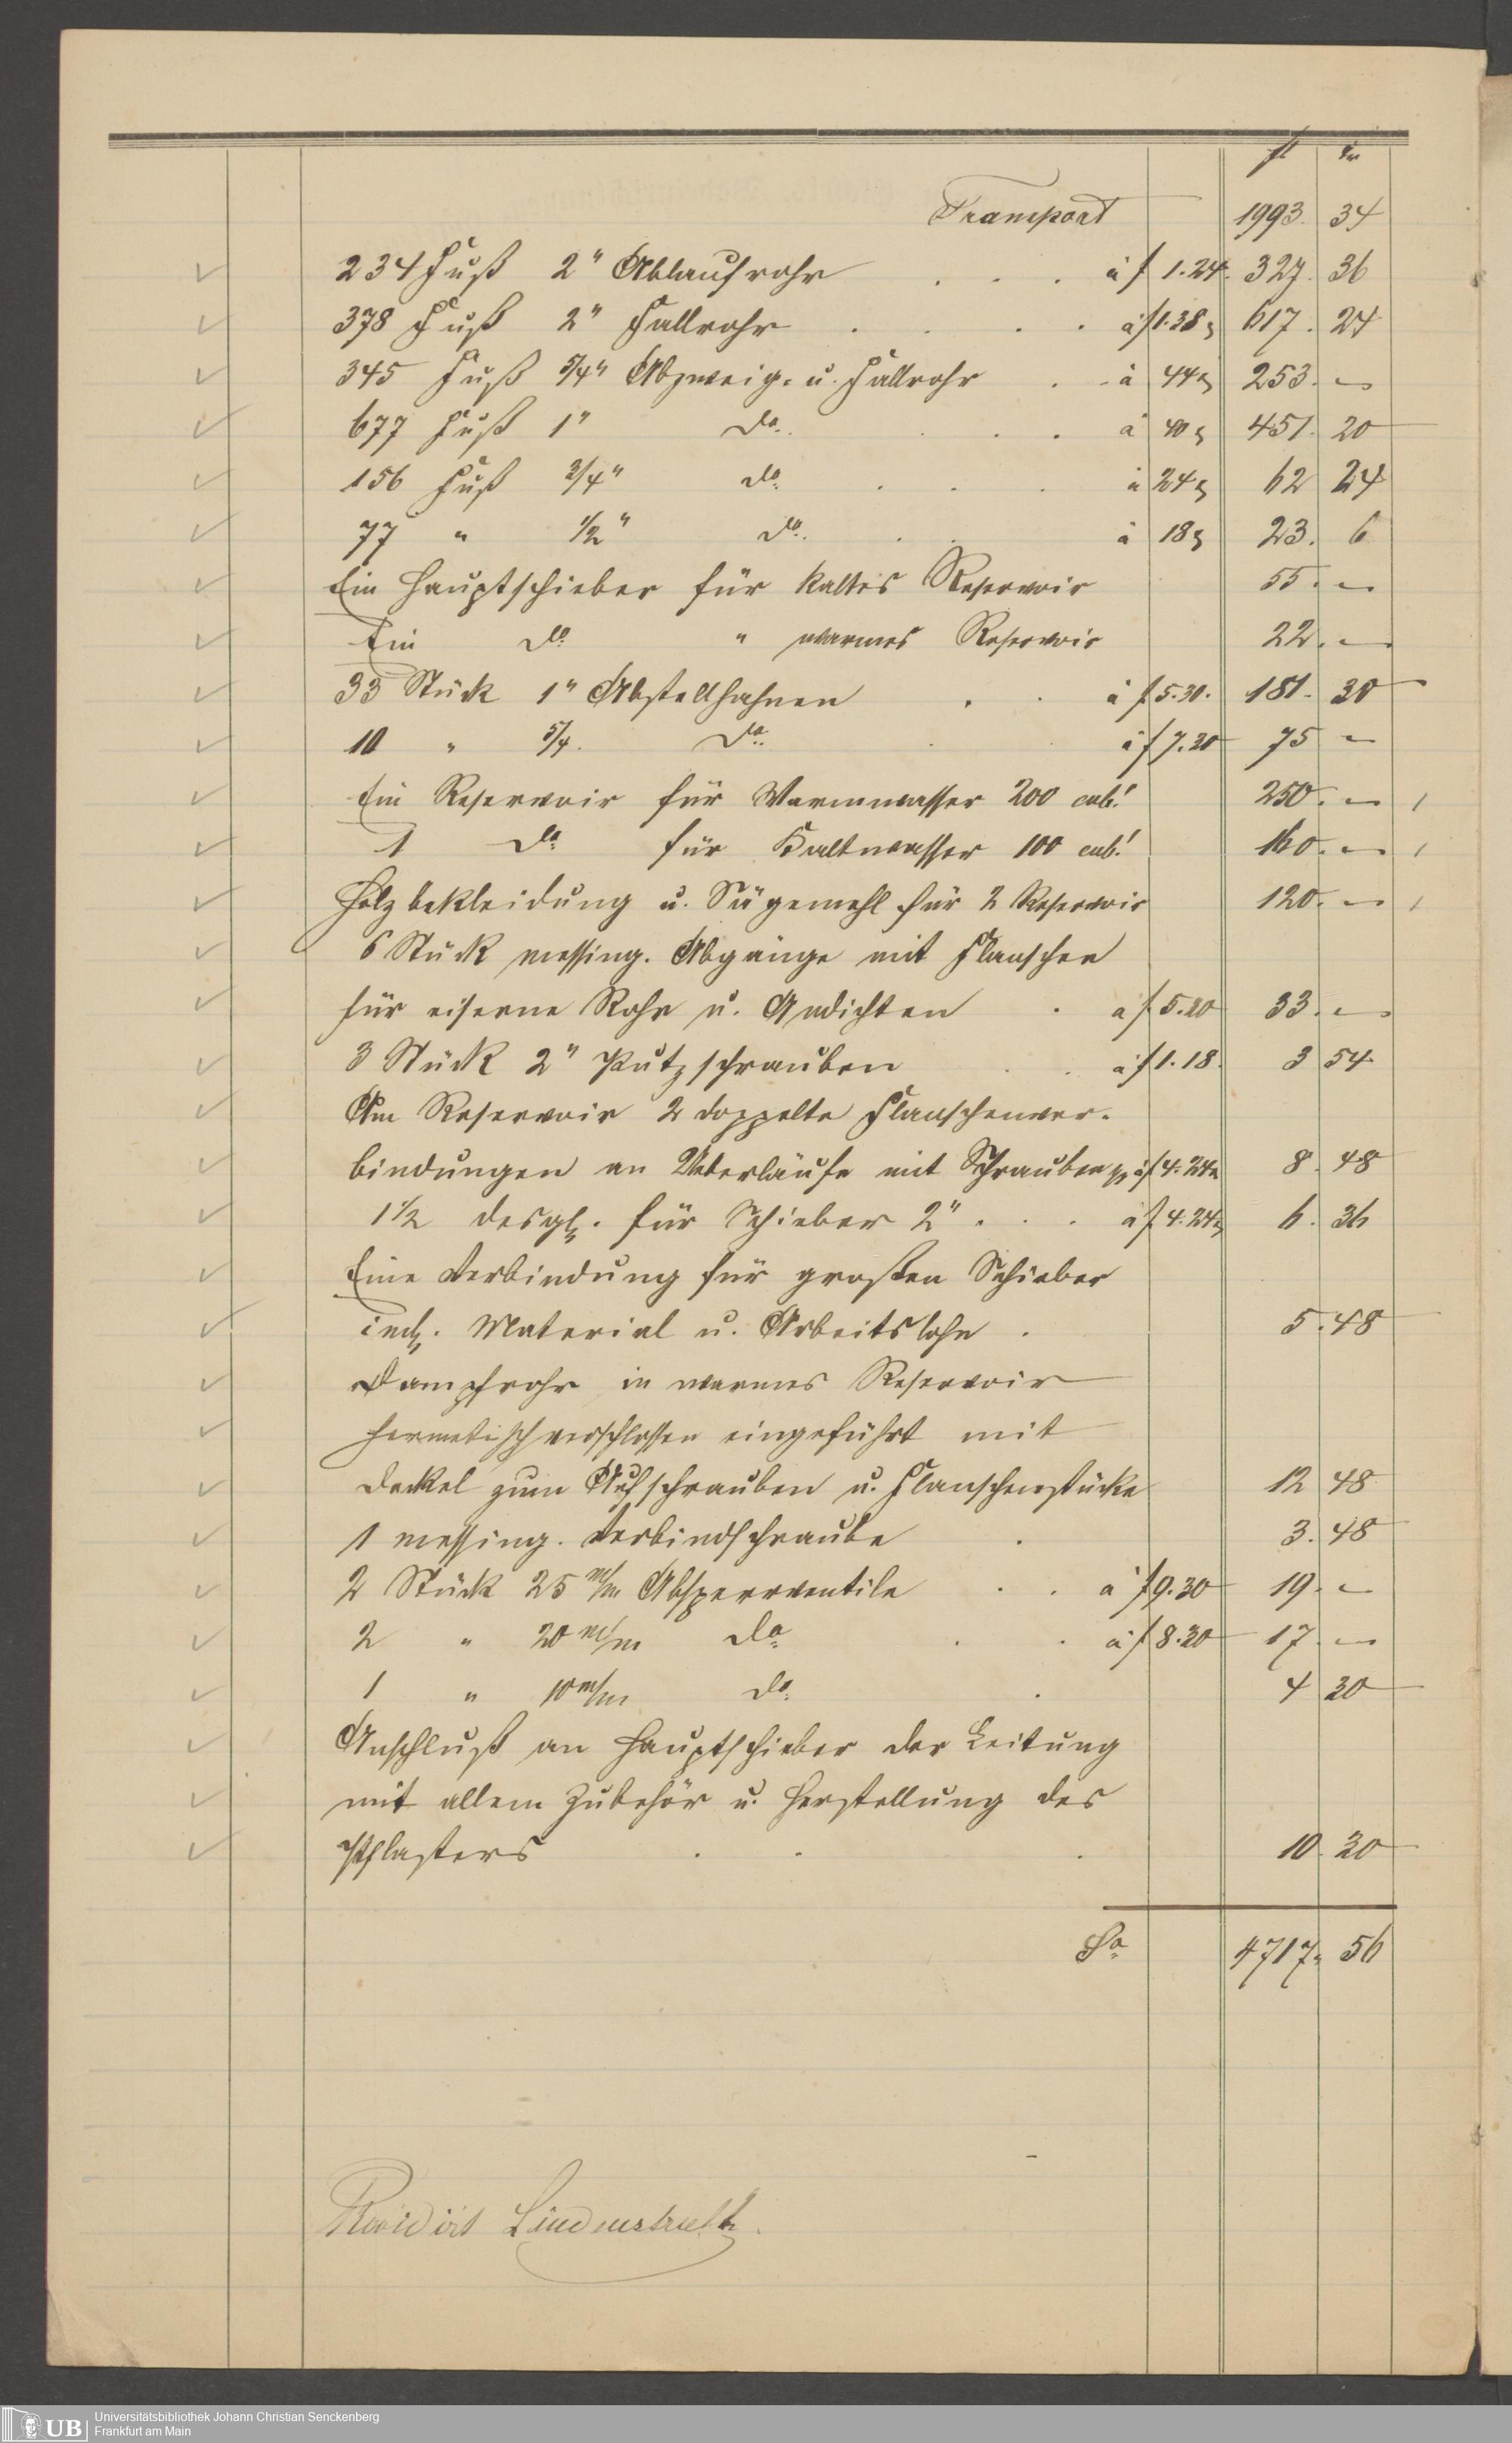 fl kr
Transport 1993. 34
234 Fuß 2" Ablaufrohr . . . à f 1.24. 327. 36
378 Fuß 2" Fallrohr . . . . à f 1.38 617. 24
345 Fuß 5/4" Abzweig- u. Fallrohr . . à 44 253. —
677 Fuß 1" do. . . à 40 451. 20
156 Fuß 3/4" do. . . . à 24 62 24
77 " 1/2" do. . . à 18 23. 6
Ein Hauptschieber für kaltes Reservoir 55. —
Ein do " warmes Reservoir 22. —
33 Stück 1" Abstellhahnen . . à f 5.30. 181. 30
10 " 5/4. do. . à f 7.30 75 —
Ein Reservoir für Warmwasser 200 cub.' 250. —
1 do. für Kaltwasser 100 cub.' 160. —
Holzbekleidung u. Sägemehl für 2 Reservoir 120. —
6 Stück messing. Abgänge mit Flanschen
für eiserne Rohr u. Andichten . à f 5.30 33. —
3 Stück 2" Putzschrauben . . à f 1.18. 3 54
Am Reservoir 2 doppelte Flanschenver-
bindungen an Ueberläufe mit Schrauben à f 4.24 8. 48
1 1/2 desgl. für Schieber 2" . . . à f 4.24 6. 36
Eine Verbindung für großen Schieber
incl. Material u. Arbeitslohn . 5. 48
Dampfrohr in warmes Reservoir
hermetisch verschlossen eingeführt mit
Deckel zum Aufschrauben u. Flanschenstücke 12 48
1 messing. Verbindschraube . 3. 48
2 Stück 25 m/m Absperrventile . . à f 9.30 19. —
2 " 20 m/m do . . à f 8.30 17. —
1 " 10 m/m do. . 4 30
Anschluß an Hauptschieber der Leitung
mit allem Zubehör u. Herstellung des
Pflasters . . . 10. 30
Sa 4717. 56
Lindenstruth.
UB Universitätsbibliothek Johann Christian Senckenberg
Frankfurt am Main